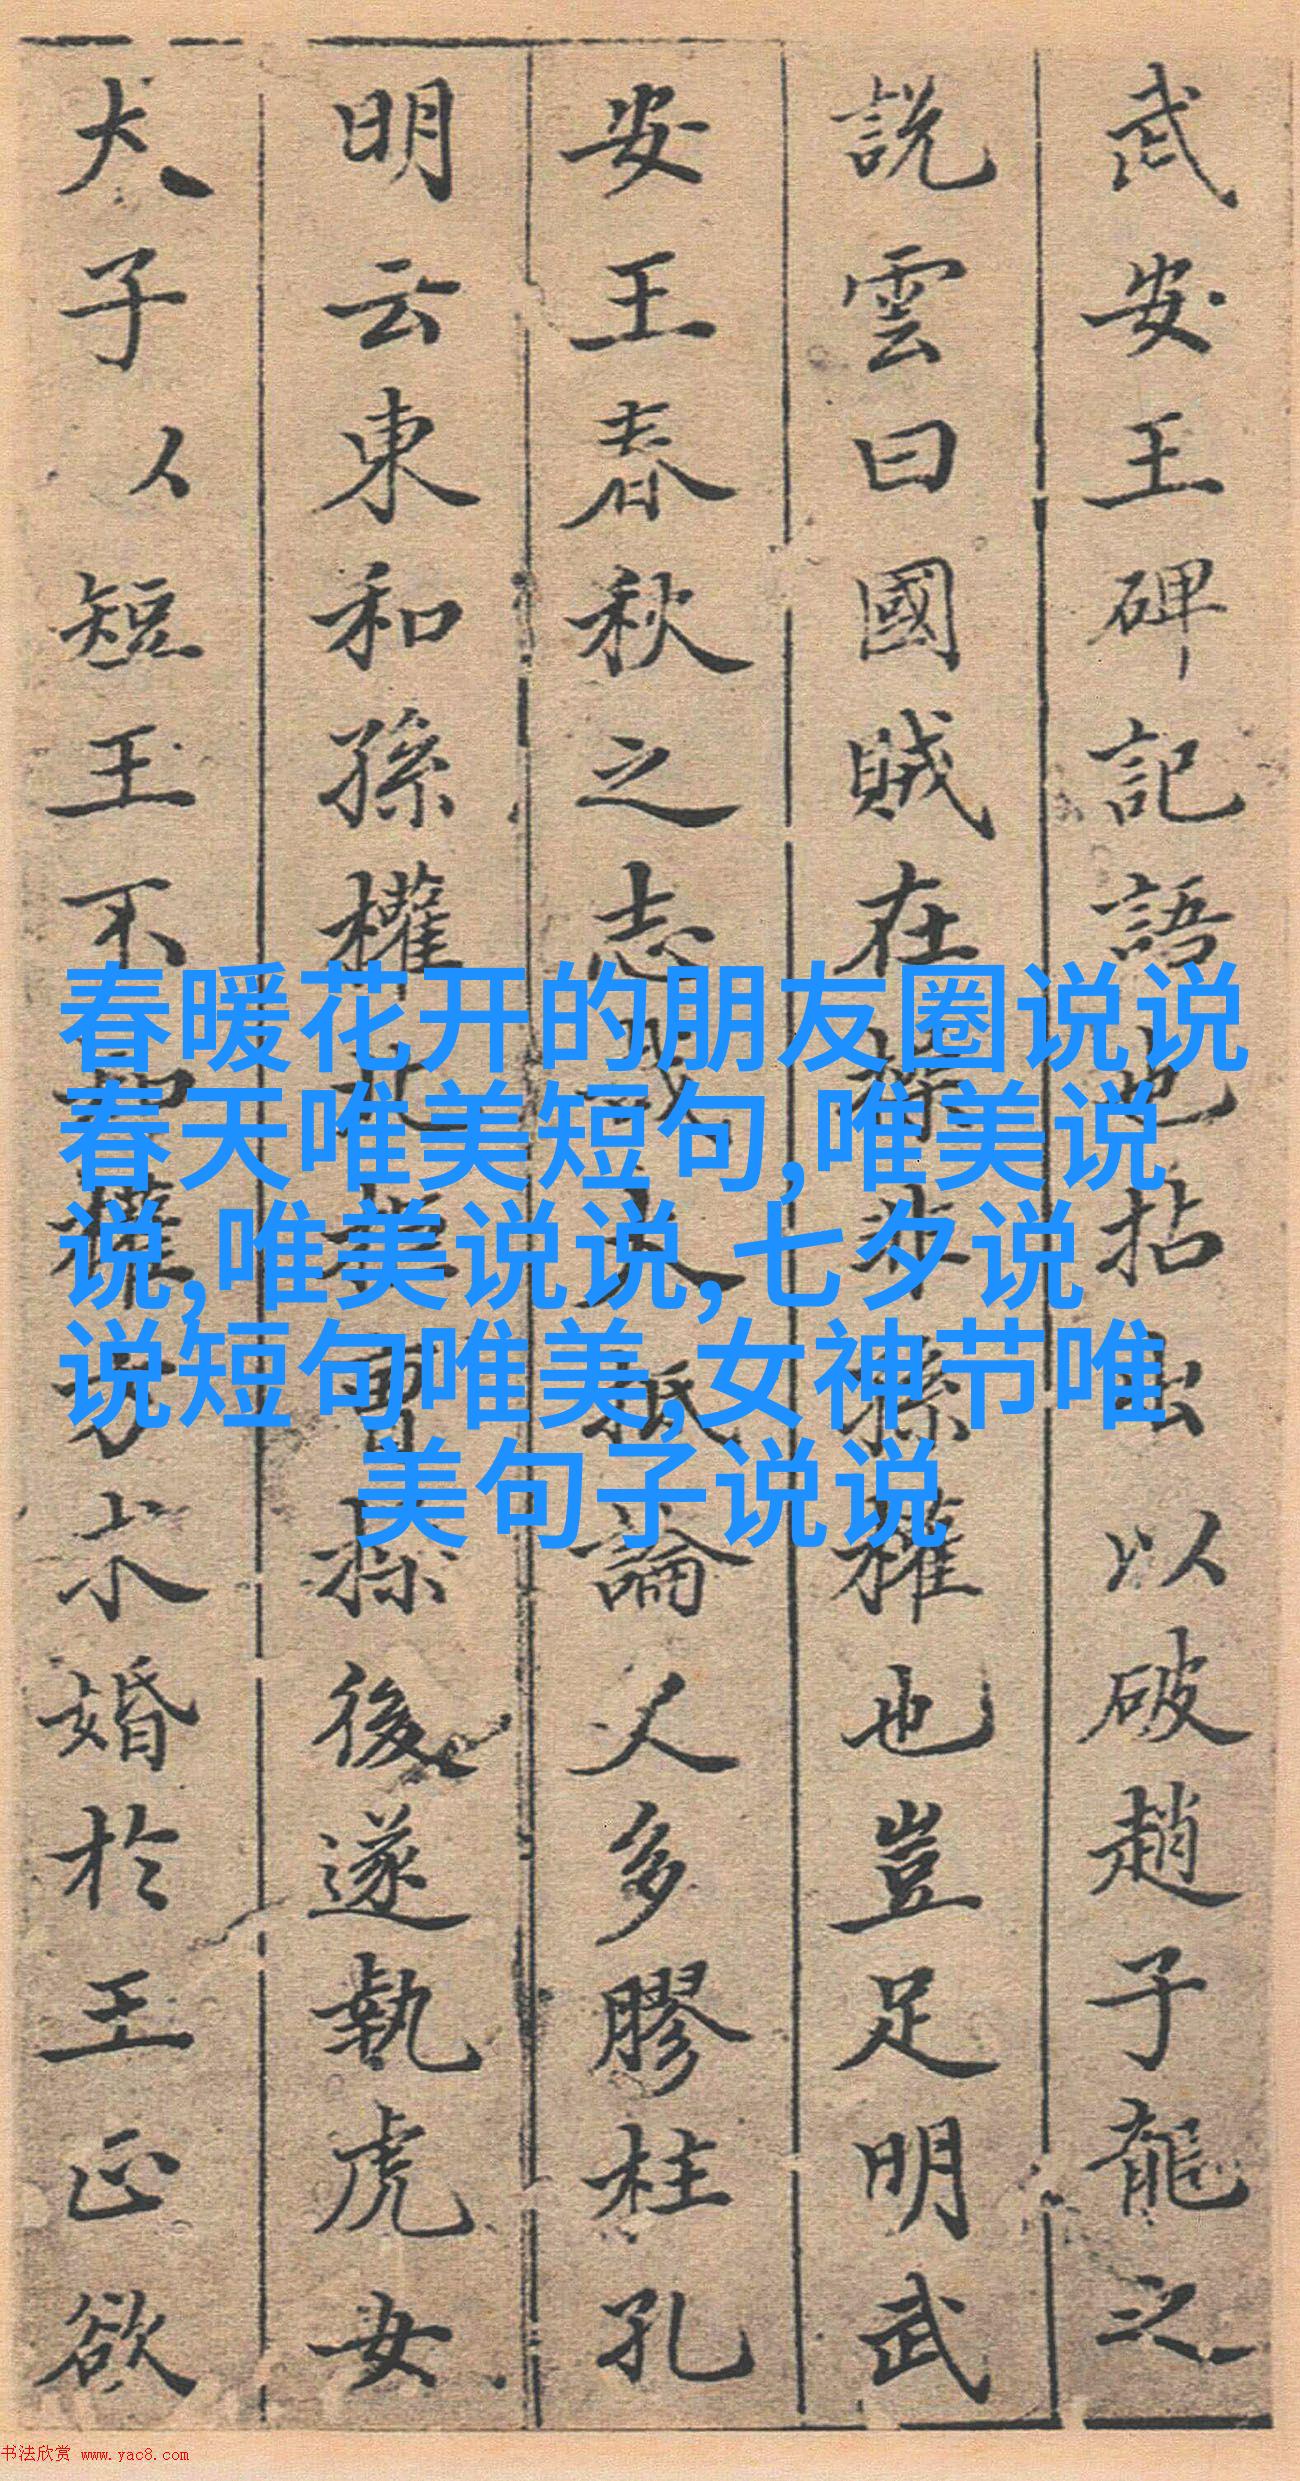 武安王碑記語也拈出以破趙子龍之
說雲曰國賊在操非孫權也豈足明武
安王春秋之志或人祇論人多膠柱孔
明云東和孫權北拒曹操後遂執虎女
犬子以短王不知權方求婚於王正欲
春暖花开的朋友圈说说
春天唯美短句,唯美说
说,唯美说说,七夕说
说短句唯美,女神节唯
美句子说说
书法欣赏 www.yac8.com